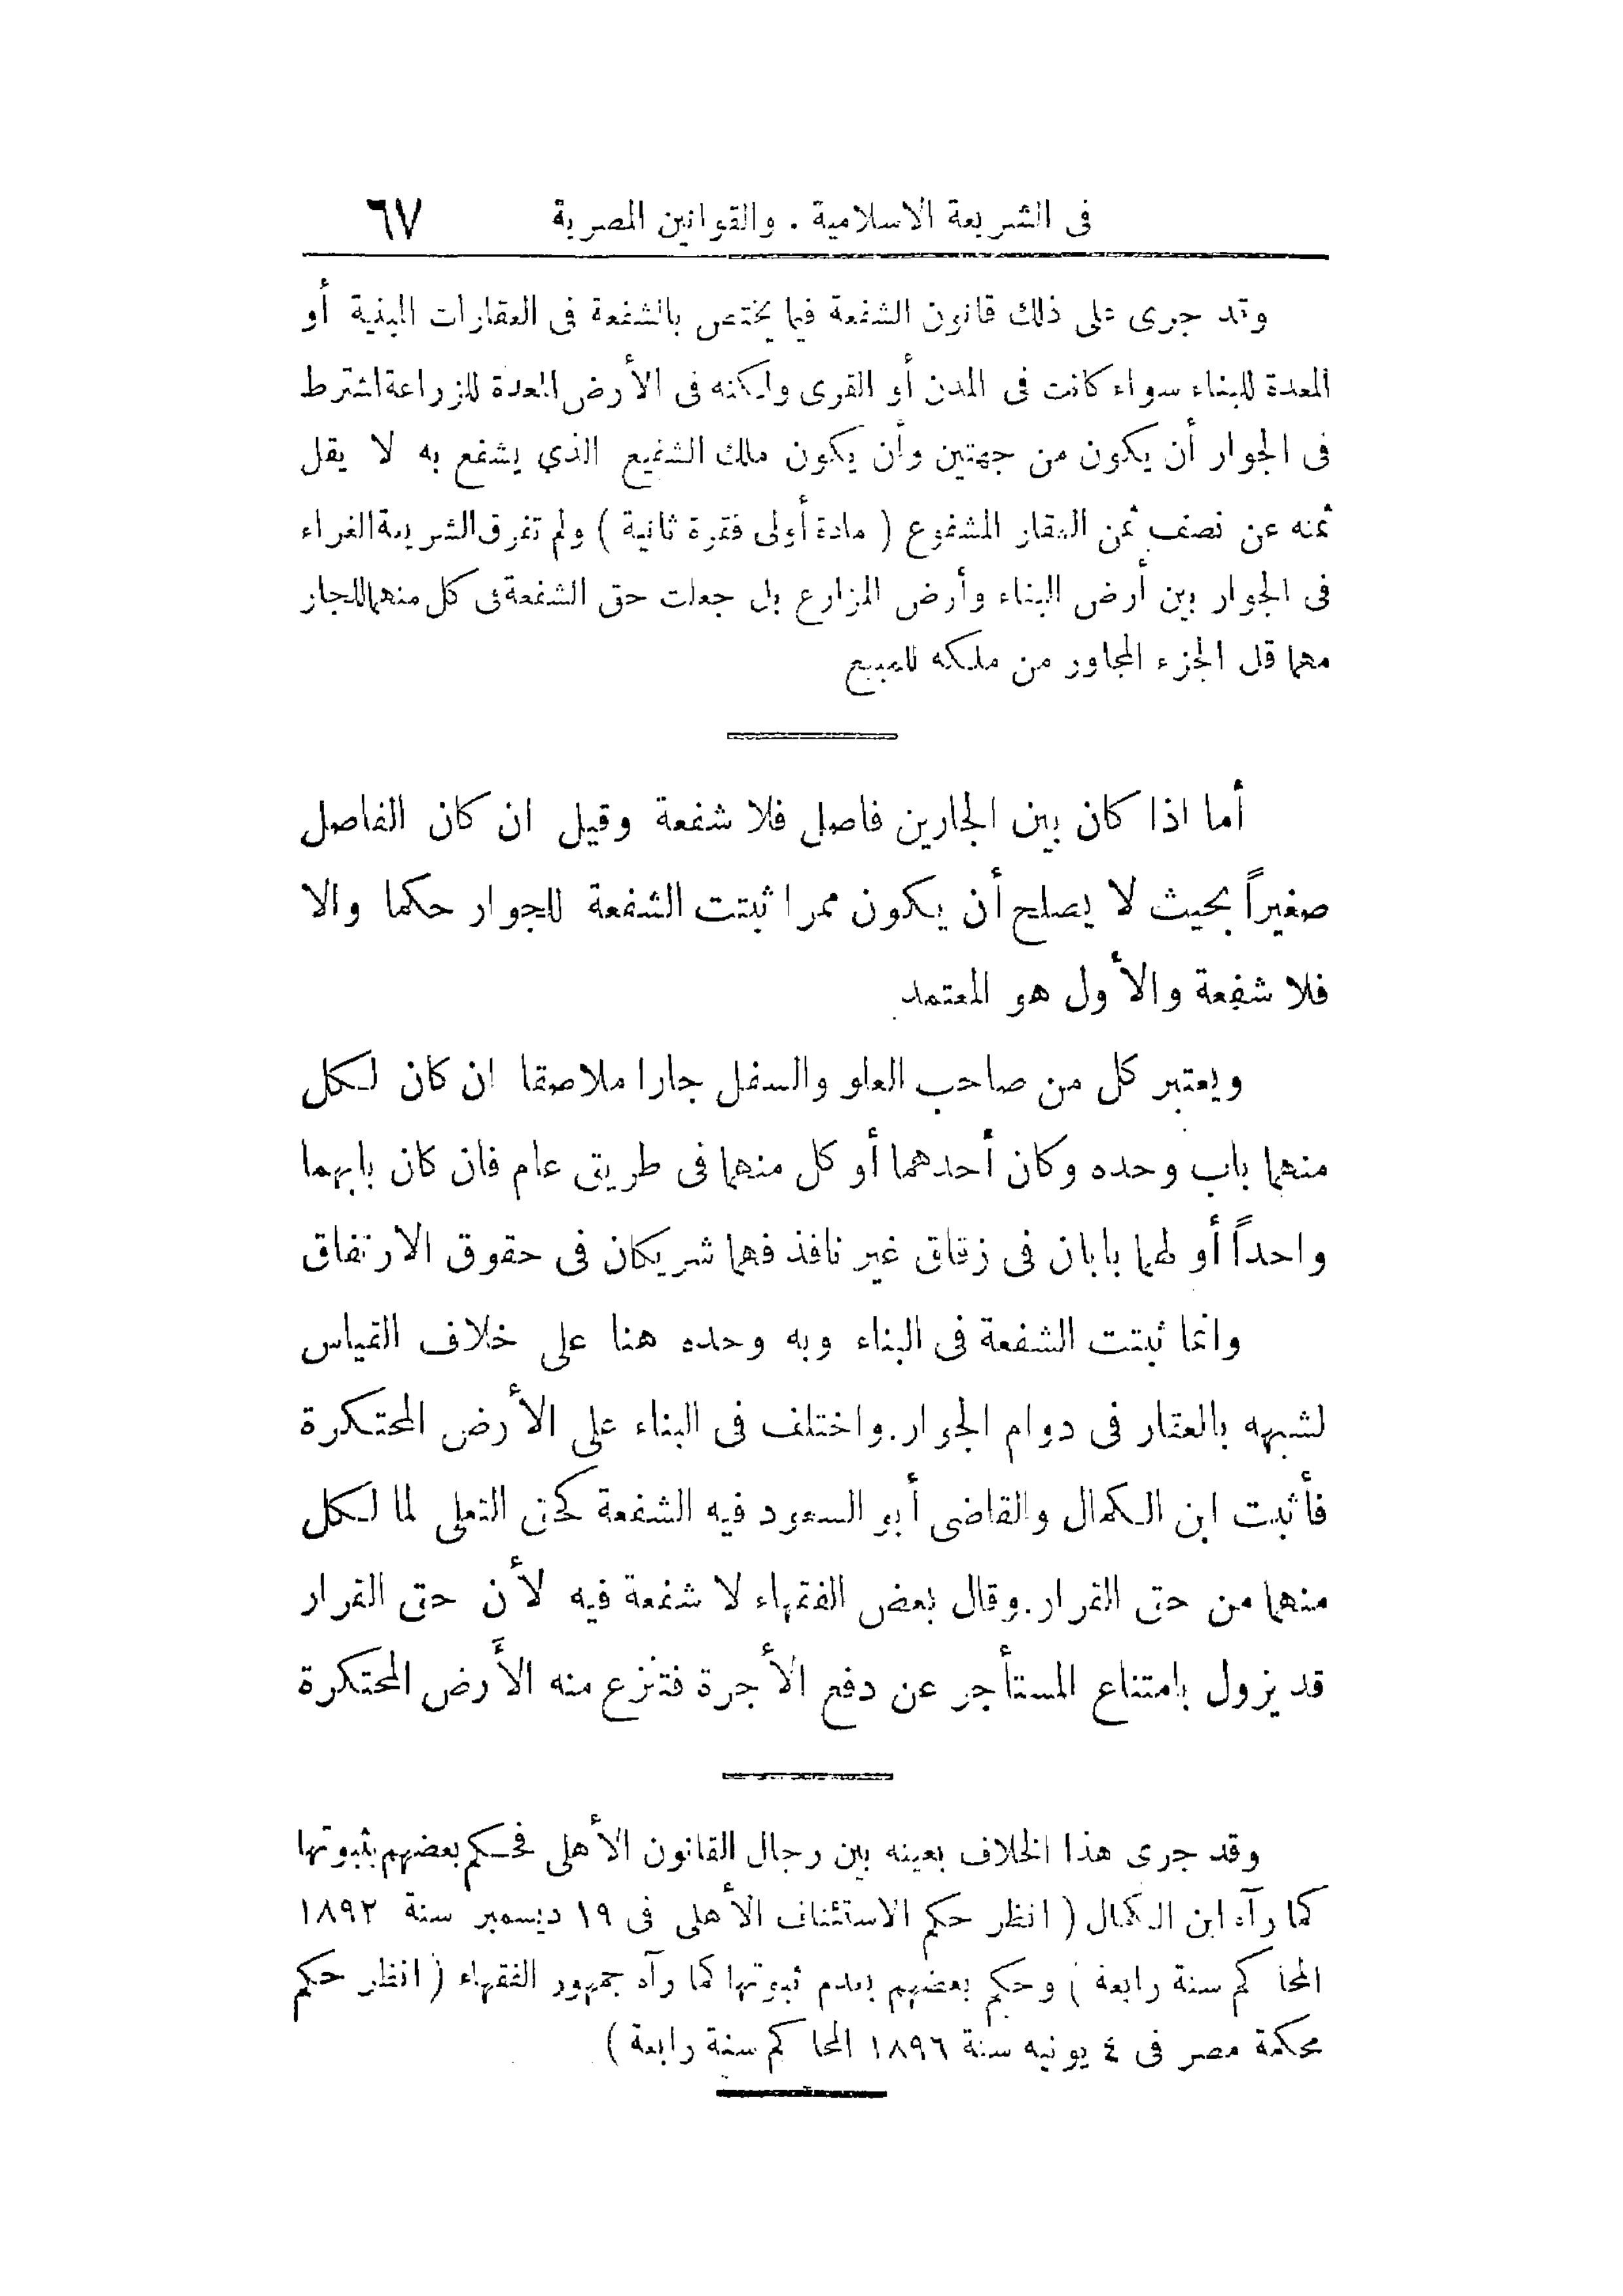 فى الشريعة الاسلامية . والقوانين المصرية ٦٧
وقد جرى على ذلك قانون الشفعة فيما يختص بالشفعة فى العقارات المبنية أو
المعدة للبناء سواء كانت فى المدن أو القرى ولكنه فى الأرض المعدة للزراعة اشترط
فى الجوار أن يكون من جهتين وأن يكون ملك الشفيع الذي يشفع به لا يقل
ثمنه عن نصف ثمن العقار المشفوع ( مادة أولى فقرة ثانية ) ولم تفرق الشريعة الغراء
فى الجوار بين أرض البناء وأرض المزارع بل جعلت حق الشفعة فى كل منهما للجار
مهما قل الجزء المجاور من ملكه للمبيع
أما اذا كان بين الجارين فاصل فلا شفعة وقيل ان كان الفاصل
صغيراً بحيث لا يصلح أن يكون ممرا ثبتت الشفعة للجوار حكما والا
فلا شفعة والأول هو المعتمد
ويعتبر كل من صاحب العلو والسفل جارا ملاصقا ان كان لكل
منهما باب وحده وكان أحدهما أو كل منهما فى طريق عام فان كان بابهما
واحداً أو لهما بابان فى زقاق غير نافذ فهما شريكان فى حقوق الارتفاق
وانما ثبتت الشفعة فى البناء وبه وحده هنا على خلاف القياس
لشبهه بالعقار فى دوام الجوار. واختلف فى البناء على الأرض المحتكرة
فأثبت ابن الكمال والقاضى أبو السعود فيه الشفعة كحق التعلى لما لكل
منهما من حق القرار. وقال بعض الفقهاء لا شفعة فيه لأن حق القرار
قد يزول بامتناع المستأجر عن دفع الأجرة فتنزع منه الأرض المحتكرة
وقد جرى هذا الخلاف بعينه بين رجال القانون الأهلى فحكم بعضهم بثبوتها
كما رآه ابن الكمال ( انظر حكم الاستئناف الأهلى فى ١٩ ديسمبر سنة ١٨٩٢
المحاكم سنة رابعة ) وحكم بعضهم بعدم ثبوتها كما رآه جمهور الفقهاء ( انظر حكم
محكمة مصر فى ٤ يونيه سنة ١٨٩٦ المحاكم سنة رابعة )